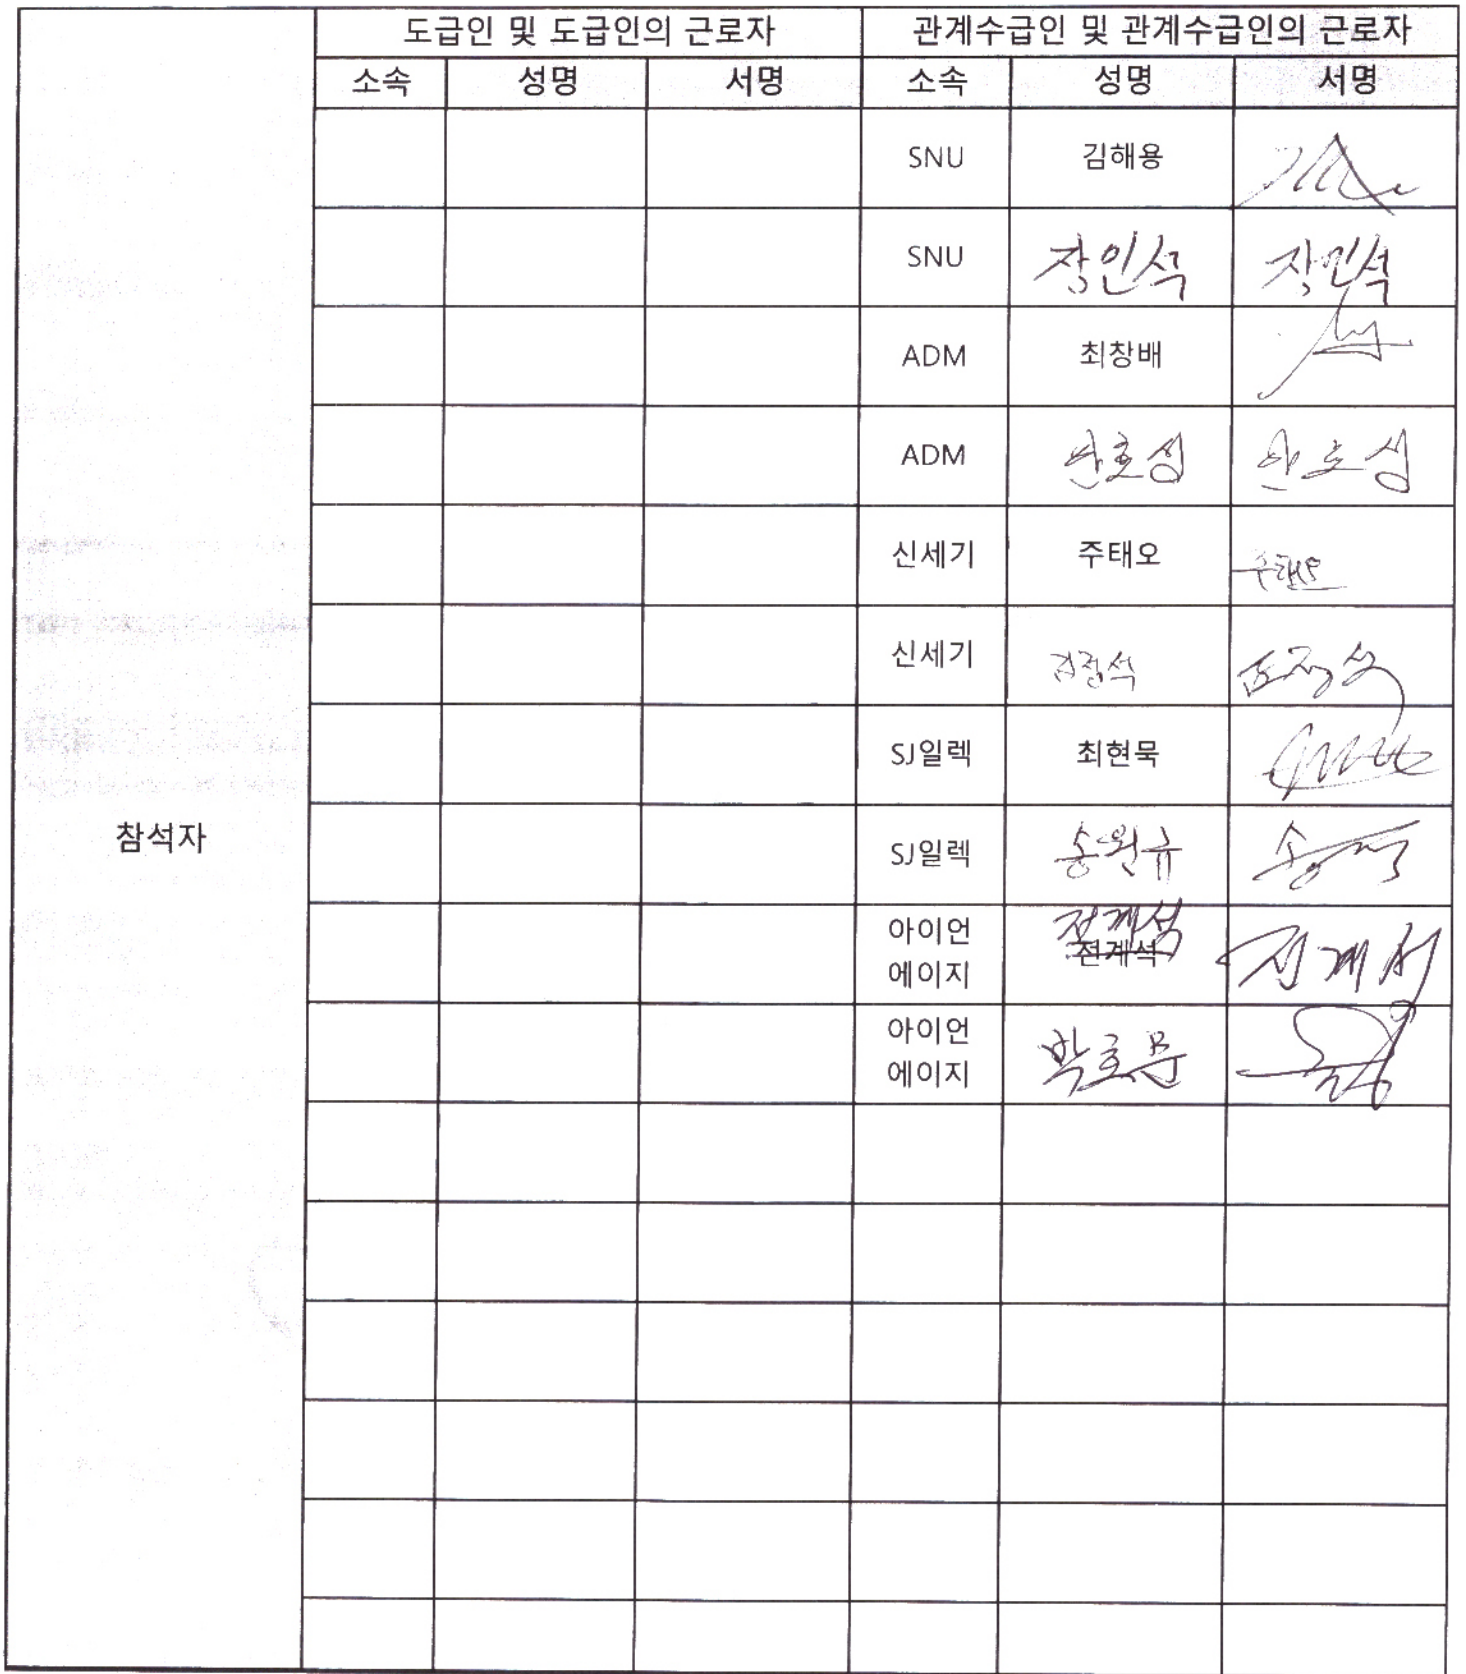 도급인 및 도급인의 근로자 관계수급인 및 관계수급인의 근로자
소속 성명 서명 소속 성명 서명
SNU 김해용
SNU 장인석 장인석
ADM 최창배
ADM
신세기 주태오 주태오
신세기 김정석
SJ일렉 최현묵
참석자
SJ일렉 송원규
아이언
에이지
전계석
전계석
아이언
에이지
박호문